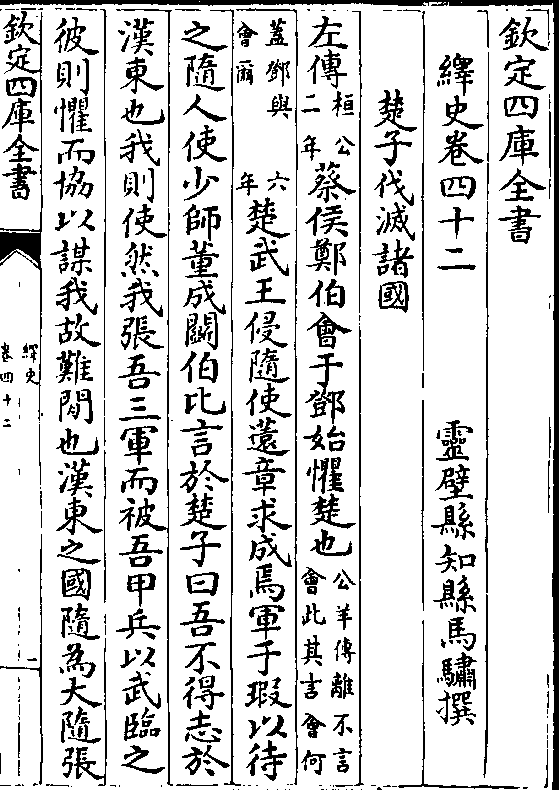 欽定四庫全書
繹史卷四十二
靈壁縣知縣馬驌撰
楚子伐滅諸國
左傳桓公二年蔡侯鄭伯會于鄧始懼楚也公羊傳離不言會此其言會何
蓋鄧與會爾六年楚武王侵隨使薳章求成焉軍于瑕以待
之隨人使少師董成鬭伯比言於楚子曰吾不得志於
漢東也我則使然我張吾三軍而被吾甲兵以武臨之
彼則懼而協以謀我故難閒也漢東之國隨為大隨張
欽定四庫全書
繹史
卷四十二
二